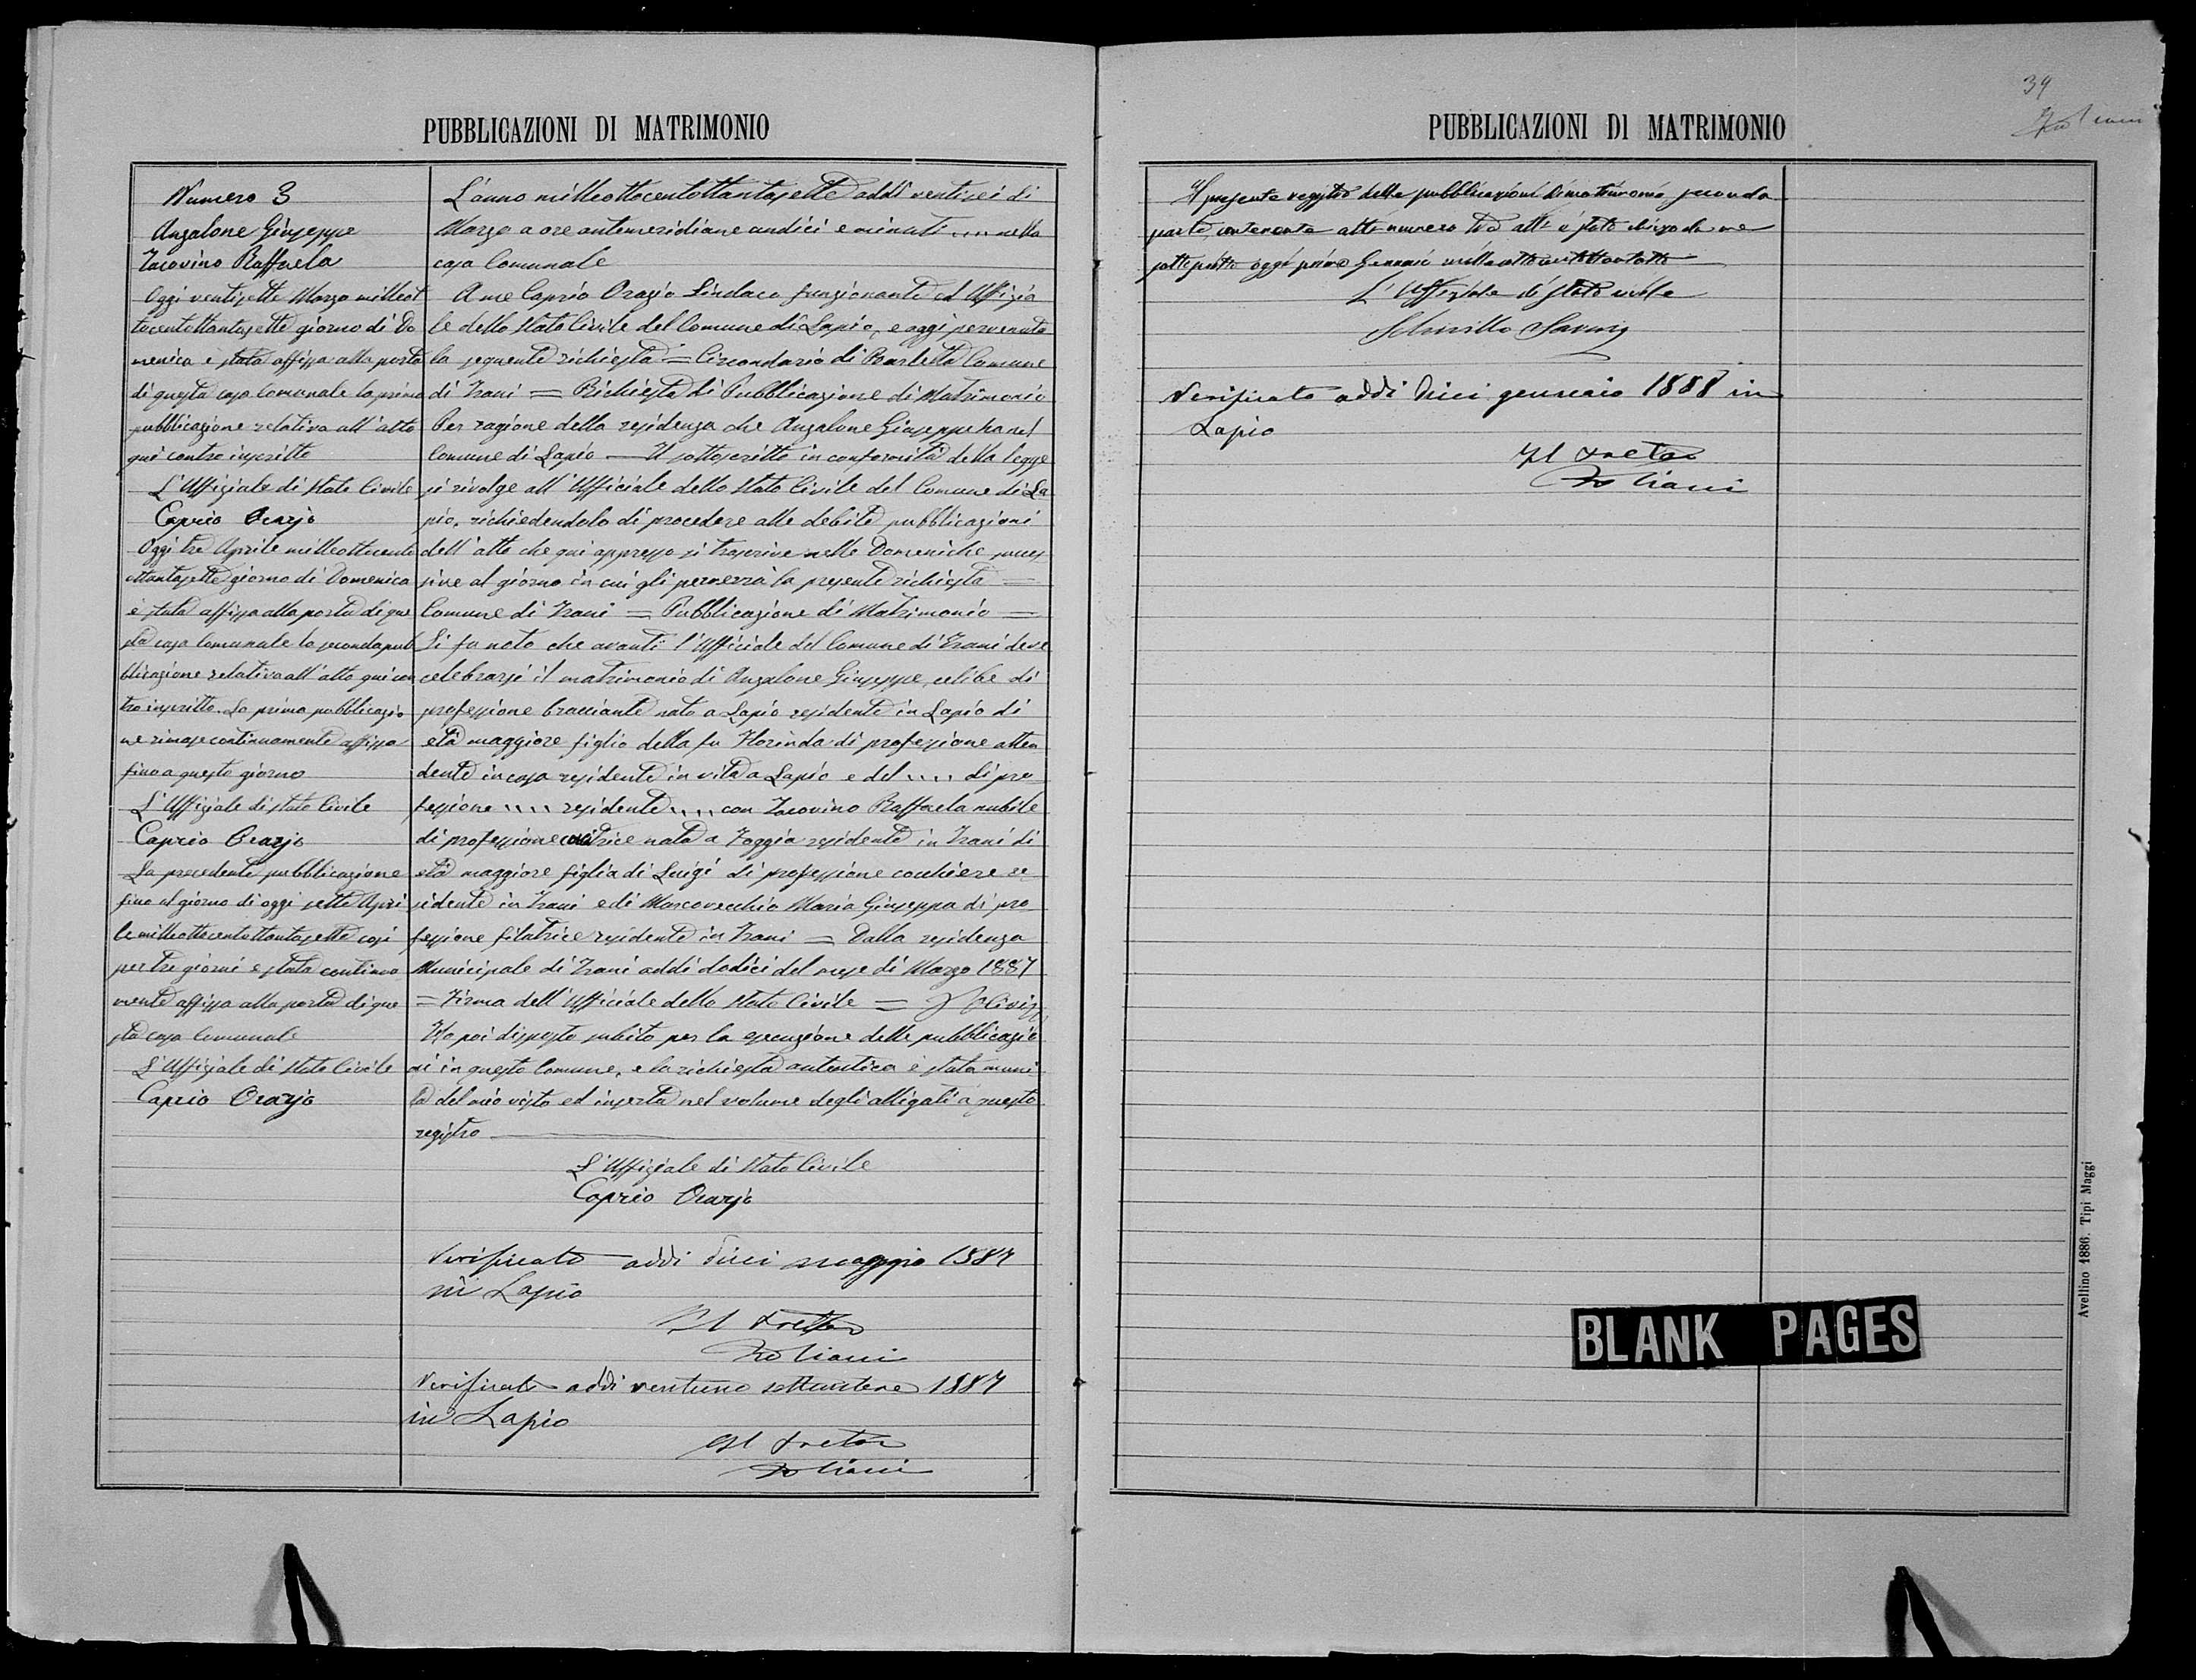 PUBBLICAZIONI DI MATRIMONIO
Numero 3
Anzalone Giuseppe
Iacovino Raffaela
Oggi ventisette Marzo milleot
tocentottantasette giorno di Do
menica è stata affissa alla porta
di questa casa Comunale la prima
pubblicazione relativa all'atto
qui contro inscritto
L'Uffiziale di Stato Civile
Caprio Orazio
Oggi tre Aprile milleottocento
ottantasette giorno di Domenica
è stata affissa alla porta di que
sta casa Comunale la seconda pub
blicazione relativa all'atto qui con
tro inscritto. La prima pubblicazio
ne rimase continuamente affissa
fino a questo giorno
L'Uffiziale di Stato Civile
Caprio Orazio
La precedente pubblicazione
fino al giorno di oggi sette Apri
le milleottocentottantasette cosi
per tre giorni è stata continua
mente affissa alla porta di que
sta casa Comunale
L'Uffiziale di Stato Civile
Caprio Orazio
L'anno milleottocentottantasette addì ventisei di
Marzo a ore antemeridiane undici e minuti .... nella
casa Comunale
A me Caprio Orazio Sindaco funzionante ed Uffizia
le dello Stato Civile del Comune di Lapio, e oggi pervenuta
la seguente richiesta = Circondario di Barletta Comune
di Trani = Richiesta di Pubblicazione di Matrimonio
Per ragione della residenza che Anzalone Giuseppe ha nel
Comune di Lapio — Il sottoscritto in conformità della legge
si rivolge all'Ufficiale dello Stato Civile del Comune di La
pio, richiedendolo di procedere alle debite pubblicazioni
dell'atto che qui appresso si trascrive nelle Domeniche succes
sive al giorno in cui gli perverrà la presente richiesta =
Comune di Trani = Pubblicazione di Matrimonio =
Si fa noto che avanti l'Ufficiale del Comune di Trani deve
celebrarsi il matrimonio di Anzalone Giuseppe, celibe di
professione bracciante nato a Lapio residente in Lapio di
età maggiore figlio della fu Florinda di professione atten
dente in casa residente in vita a Lapio e del .... di pro
fessione .... residente .... con Iacovino Raffaela nubile
di professione cucitrice nata a Foggia residente in Trani di
età maggiore figlia di Luigi di professione cocchiere re
sidente in Trani e di Mascovecchio Maria Giuseppa di pro
fessione filatrice residente in Trani = Dalla residenza
Municipale di Trani addì dodici del mese di Marzo 1887
= Firma dell'Ufficiale dello Stato Civile =
Ho poi disposto subito per la esecuzione delle pubblicazio
ni in questo Comune, e la richiesta autentica è stata muni
ta del mio visto ed inserta nel volume degli alligati a questo
registro
L'Uffiziale di Stato Civile
Caprio Orazio
Verificato addi dieci maggio 1887
in Lapio
Il Pretore
Verificato addi ventuno settembre 1887
in Lapio
Il Pretore
39
PUBBLICAZIONI DI MATRIMONIO
Il presente registro delle pubblicazioni di matrimonio seconda
parte, contenente atti numero tre atti è stato chiuso da me
sottoscritto oggi primo Gennaio milleottocentottantotto
L'Uffiziale di Stato civile
Verificato addi dieci gennaio 1888 in
Lapio
Il Pretore
BLANK PAGES
Avellino 1886. Tipi Maggi